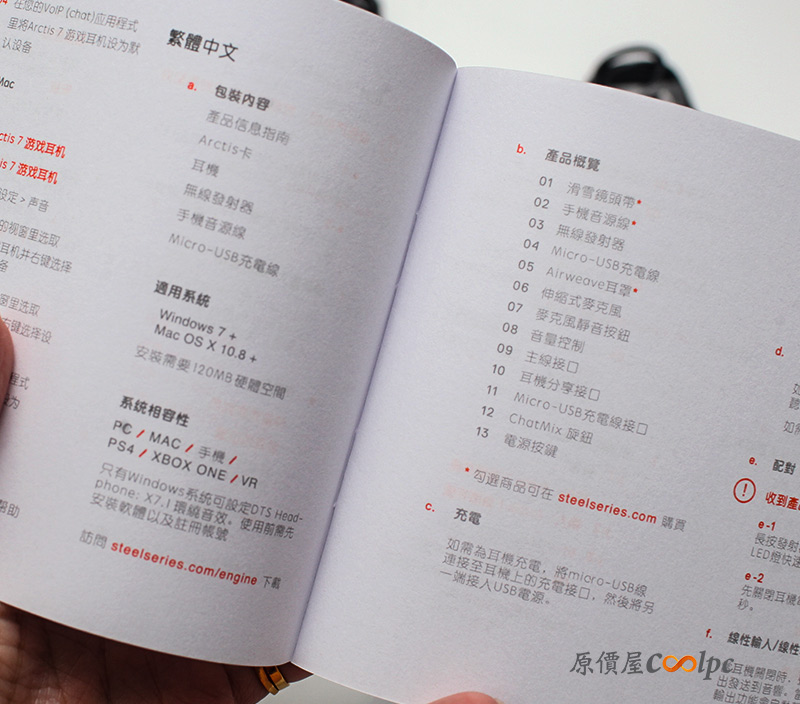 在您的VoIP (chat)应用程式
里将Arctis 7 游戏耳机设为默
认设备
Mac
ctis 7 游戏耳机
is 7 游戏耳机
设定 > 声音
的视窗里选取
耳机并右键选择
备
窗里选取
右键选择设
程式
为
帮助
繁體中文
a. 包裝內容
產品信息指南
Arctis卡
耳機
無線發射器
手機音源線
Micro-USB充電線
適用系統
Windows 7 +
Mac OS X 10.8 +
安裝需要120MB 硬體空間
系統相容性
PC / MAC / 手機 /
PS4 / XBOX ONE / VR
只有Windows系統可設定DTS Head-
phone: X7.1 環繞音效。使用前需先
安裝軟體以及註冊帳號
訪問 steelseries.com/engine 下載
b. 產品概覽
01 滑雪鏡頭帶*
02 手機音源線*
03 無線發射器
04 Micro-USB充電線
05 Airweave耳罩*
06 伸縮式麥克風
07 麥克風靜音按鈕
08 音量控制
09 主線接口
10 耳機分享接口
11 Micro-USB充電線接口
12 ChatMix 旋鈕
13 電源按鍵
* 勾選商品可在 steelseries.com 購買
c. 充電
如需為耳機充電，將micro-USB線
連接至耳機上的充電接口，然後將另
一端接入USB電源。
d.
如需
e. 配對
! 收到產
e-1
長按發射
LED燈快速
e-2
先關閉耳機
秒。
f. 線性輸人/線性
耳機開閉時，
出發送到音響。
輸出功能會
原價屋Coolpc